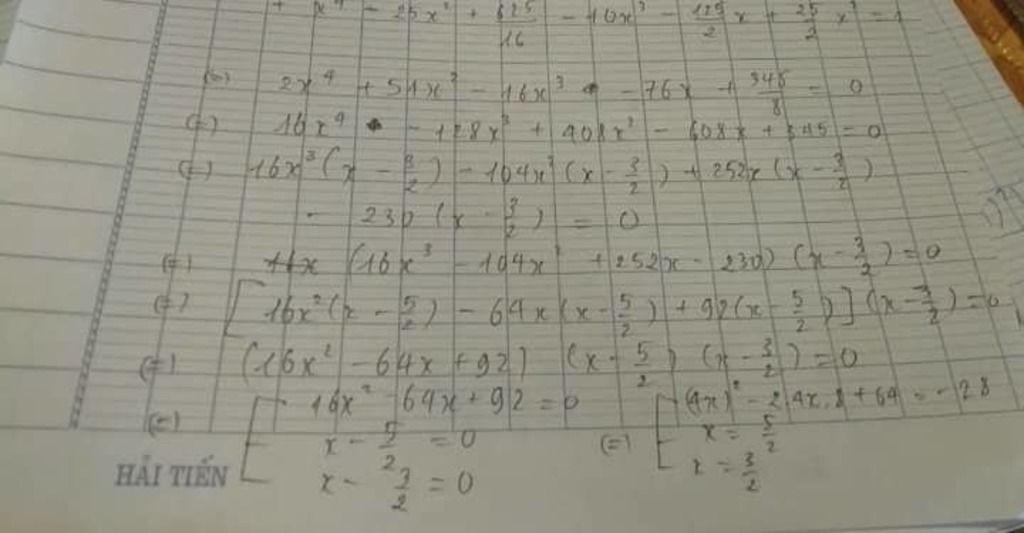 + x⁴ - 25x² + 625/16 - 16x³ - 125/2 x + 25/2 x² = 1
(=) 2x⁴ + 51x² - 16x³ - 76x + 345/8 = 0
(=) 16x⁴ - 128x³ + 408x² - 608x + 345 = 0
(=) 16x³(x - 3/2) - 104x²(x - 3/2) + 252x(x - 3/2)
- 230(x - 3/2) = 0
(=) (16x³ - 104x² + 252x - 230)(x - 3/2) = 0
(=) [16x²(x - 5/2) - 64x(x - 5/2) + 92(x - 5/2)](x - 3/2) = 0
(=) (16x² - 64x + 92)(x - 5/2)(x - 3/2) = 0
(=) [ 16x² - 64x + 92 = 0 (=) [ (4x)² - 2.4x.8 + 64 = -28
x - 5/2 = 0 x = 5/2
x - 3/2 = 0 x = 3/2
HẢI TIẾN